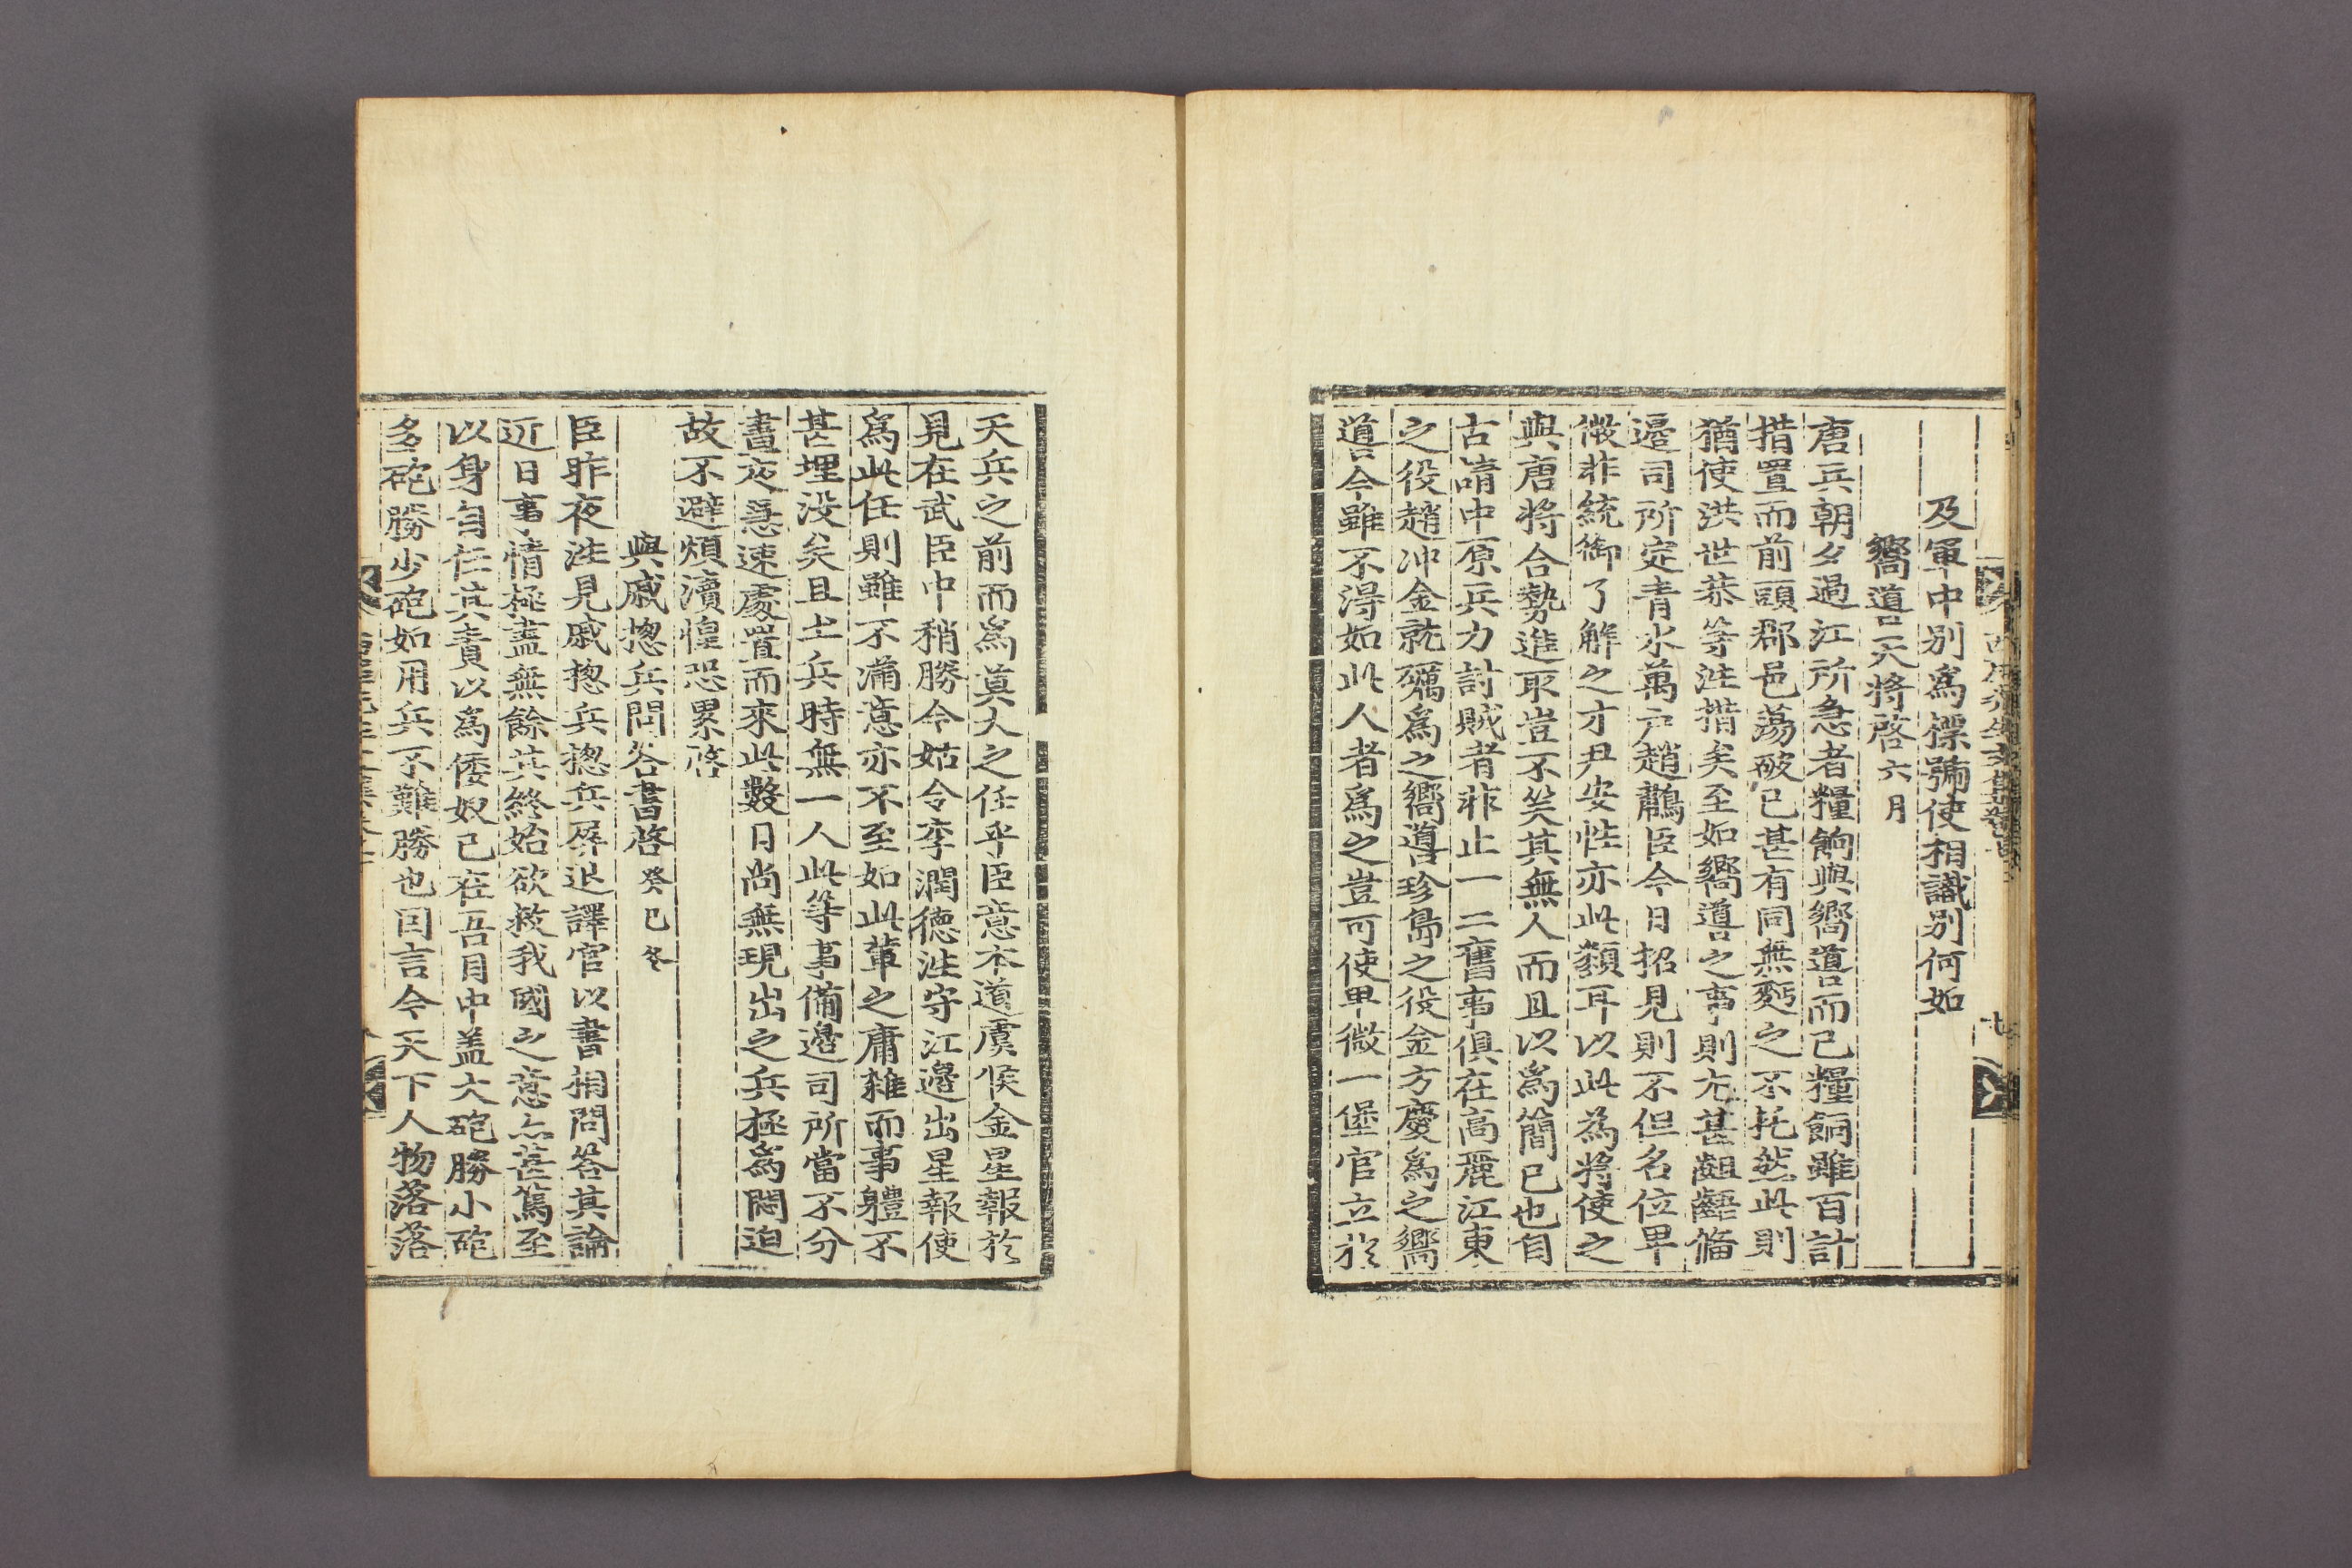 及軍中別爲標號使相識別何如
嚮導天將啓六月
唐兵朝夕過江所急者糧餉與嚮導而已糧餉雖百計
措置而前頭郡邑蕩破已甚有同無麪之不托然此則
猶使洪世恭等往措矣至如嚮導之事則尤甚齟齬備
邊司所定青水萬戶趙鸘臣今日招見則不但名位卑
微非統御了解之才尹安性亦此類耳以此為將使之
與唐將合勢進取豈不笑其無人而且以爲簡已也自
古請中原兵力討賊者非止一二舊事俱在高麗江東
之役趙冲金就礪爲之嚮導珍島之役金方慶爲之嚮
導今雖不得如此人者爲之豈可使卑微一堡官立於
天兵之前而爲莫大之任乎臣意本道虞候金星報於
見在武臣中稍勝今姑令李潤德往守江邊出星報使
爲此任則雖不滿意亦不至如此輩之庸雜而事軆不
甚埋没矣且土兵時無一人此等事備邊司所當不分
晝夜急速處置而來此數日尚無現出之兵極爲悶迫
故不避煩瀆惶恐累啓
與戚揔兵問答書啓癸巳冬
臣昨夜往見戚揔兵揔兵屏退譯官以書相問答其論
近日事情極盡無餘其終始欲救我國之意亦甚篤至
以身自任其責以爲倭奴已在吾目中盖大砲勝小砲
多砲勝少砲如用兵不難勝也因言今天下人物落落